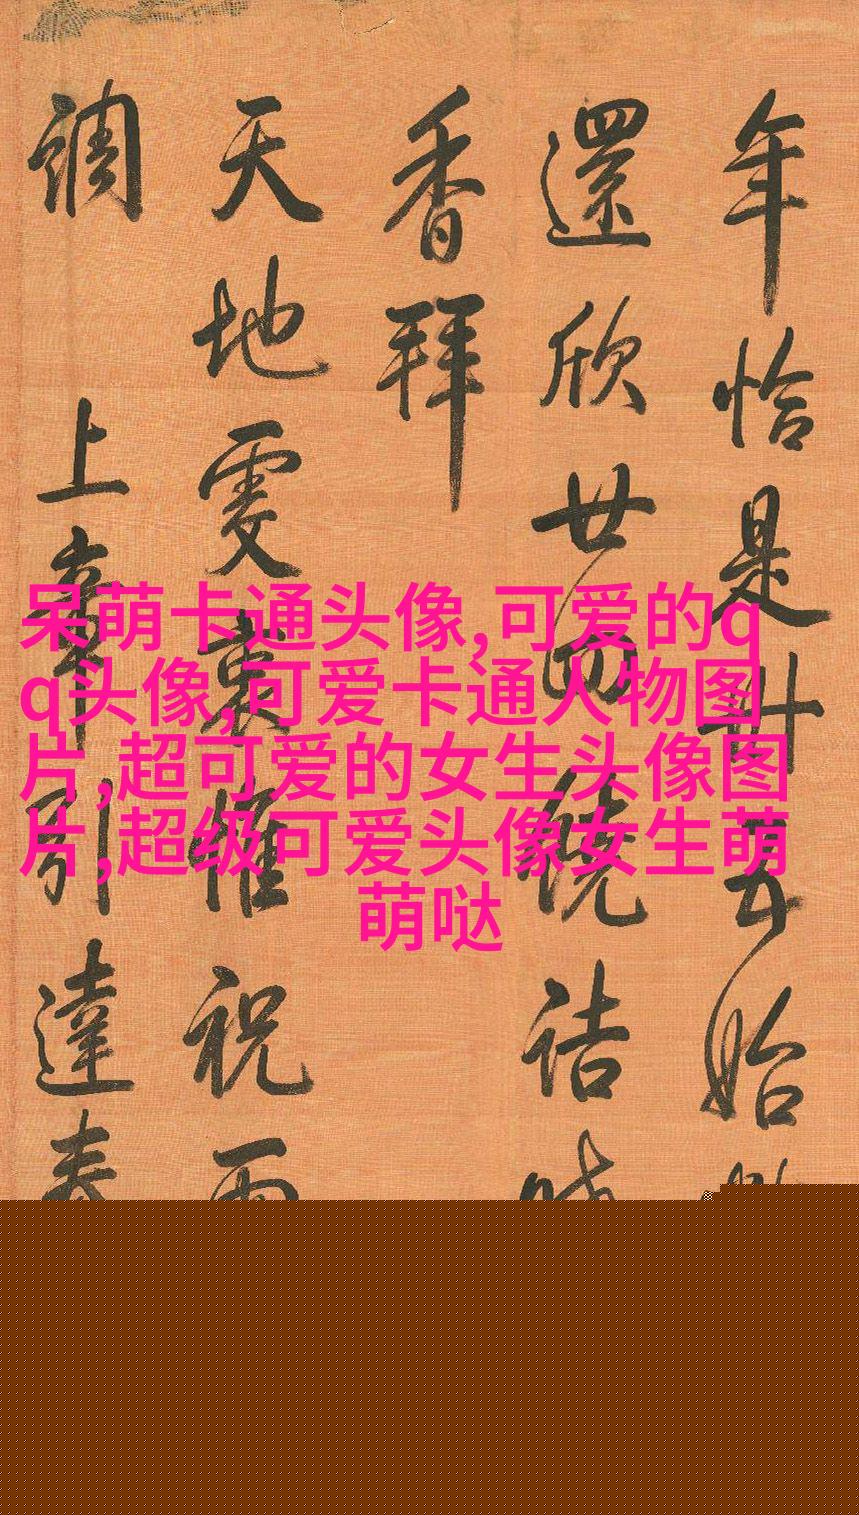 年恰是廿五始
還欣廿四繞詰
香拜
天地雯裏惟祝
調上章引達春
呆萌卡通头像,可爱的q
q头像,可爱卡通人物图
片,超可爱的女生头像图
片,超级可爱头像女生萌
萌哒